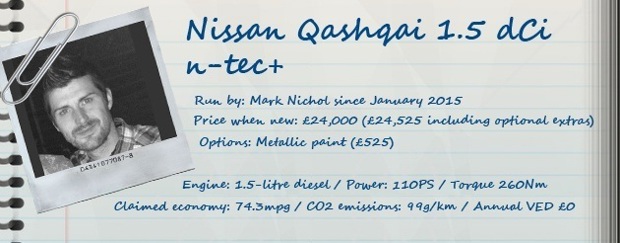 Nissan Qashqai 1.5 dCi
n-tec+
Run by: Mark Nichol since January 2015
Price when new: £24,000 (£24,525 including optional extras)
Options: Metallic paint (£525)
Engine: 1.5-litre diesel / Power: 110PS / Torque 260Nm
Claimed economy: 74.3mpg / CO2 emissions: 99g/km / Annual VED £0